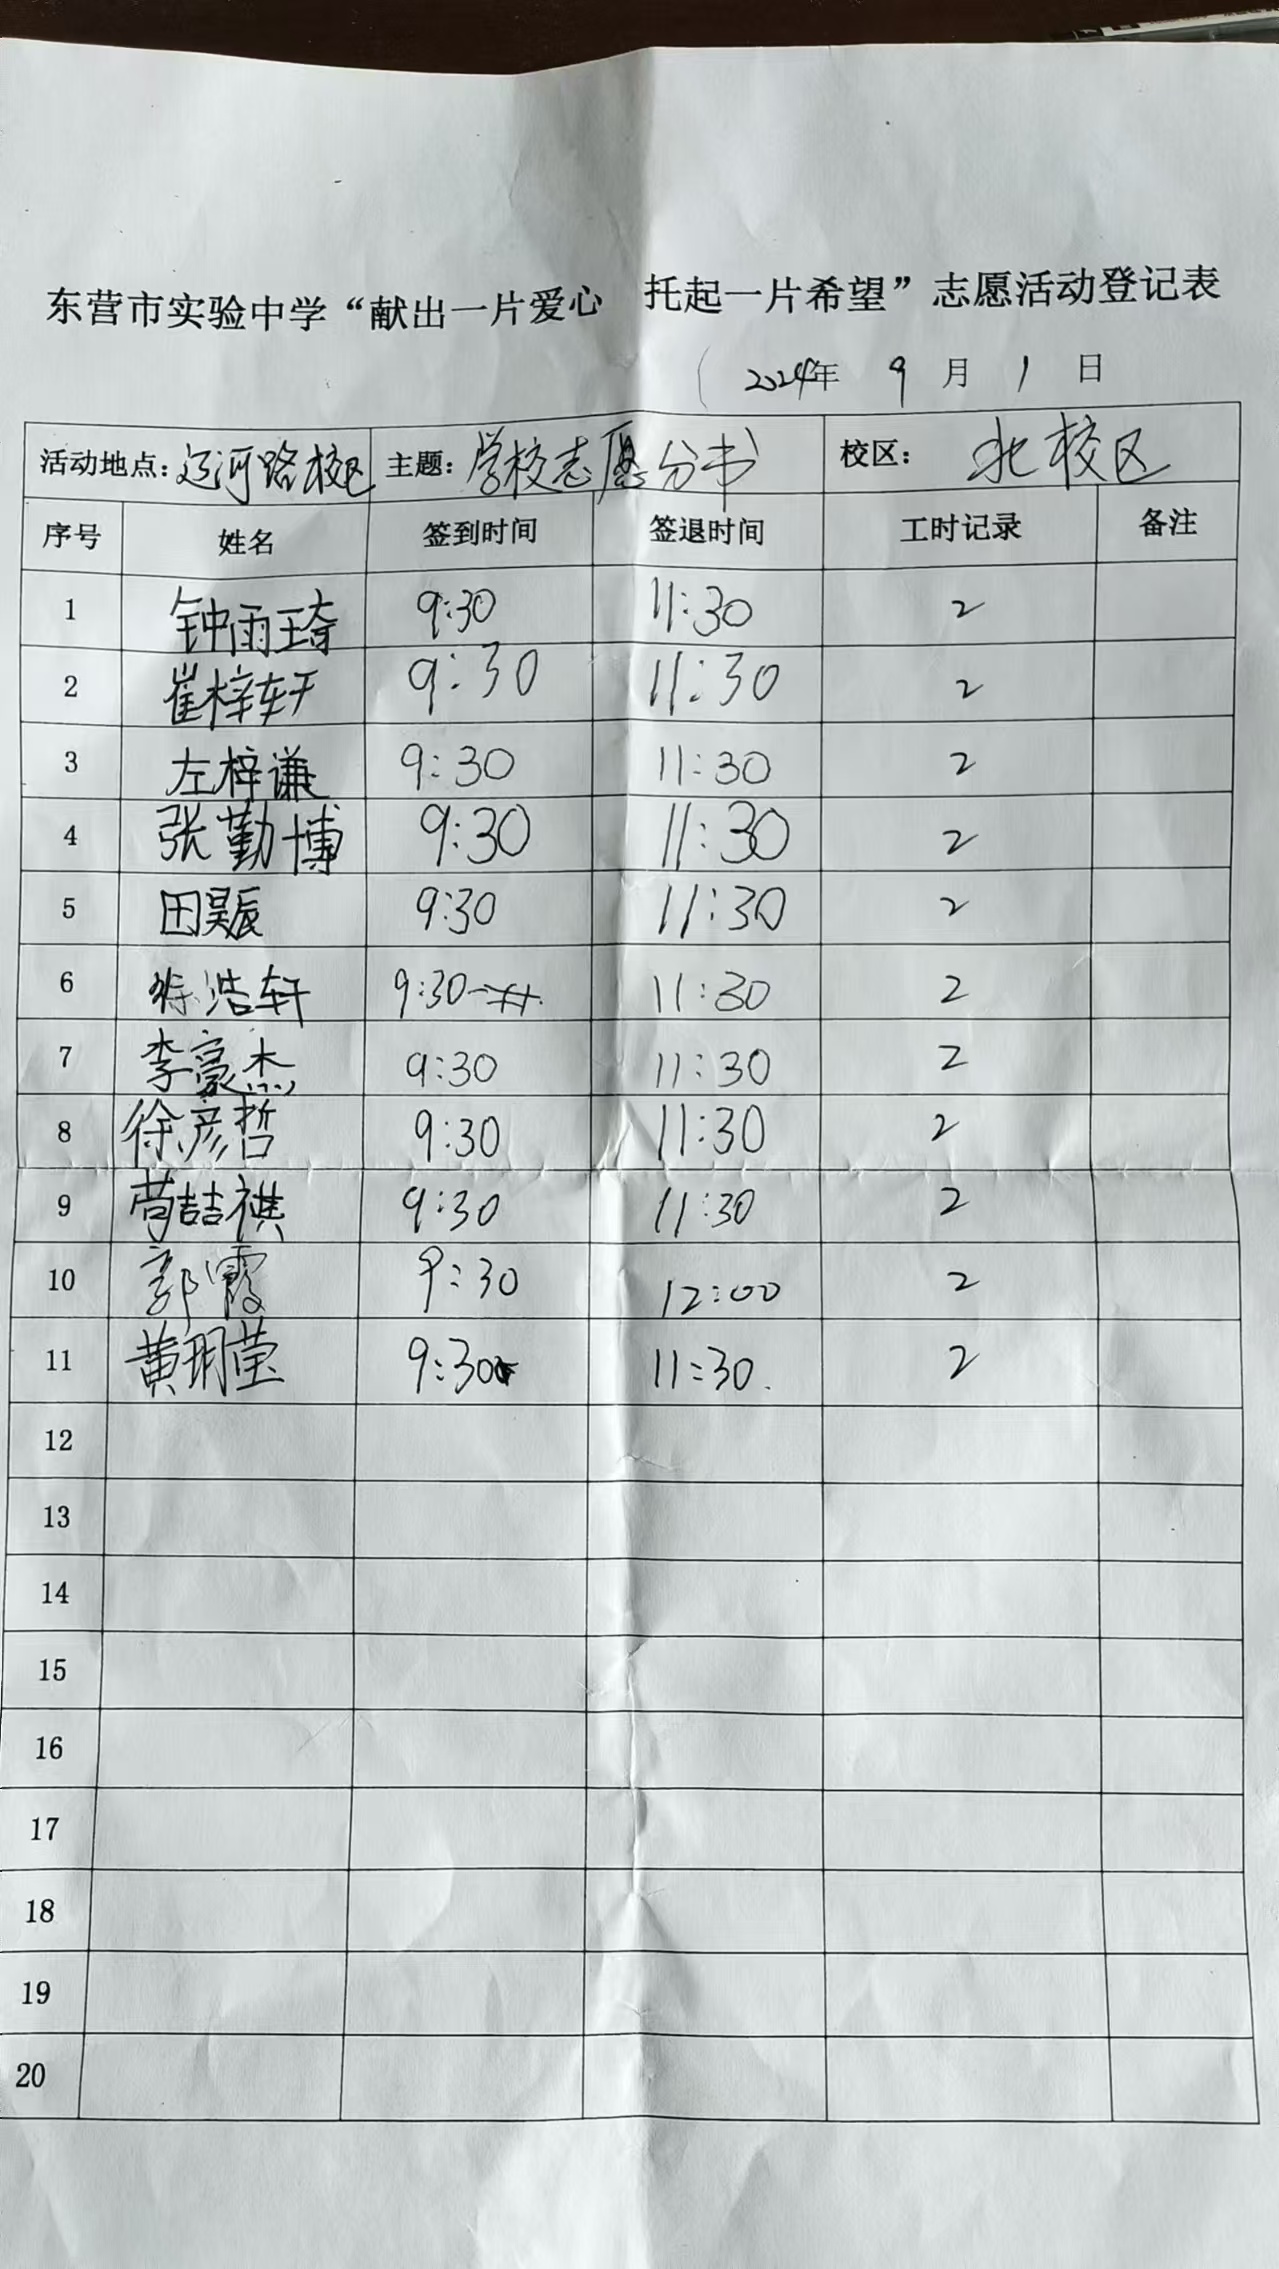 东营市实验中学“献出一片爱心 托起一片希望”志愿活动登记表
2024年 9 月 1 日
活动地点：辽河路校区 主题：学校志愿分书 校区：北校区
序号 姓名 签到时间 签退时间 工时记录 备注
1 钟雨琦 9:30 11:30 2
2 崔梓轩 9:30 11:30 2
3 左梓谦 9:30 11:30 2
4 张勤博 9:30 11:30 2
5 田昊辰 9:30 11:30 2
6 徐浩轩 9:30 11:30 2
7 李豪杰 9:30 11:30 2
8 徐彦哲 9:30 11:30 2
9 苟喆祺 9:30 11:30 2
10 郭霞 9:30 12:00 2
11 黄玥莹 9:30 11:30 2
12
13
14
15
16
17
18
19
20